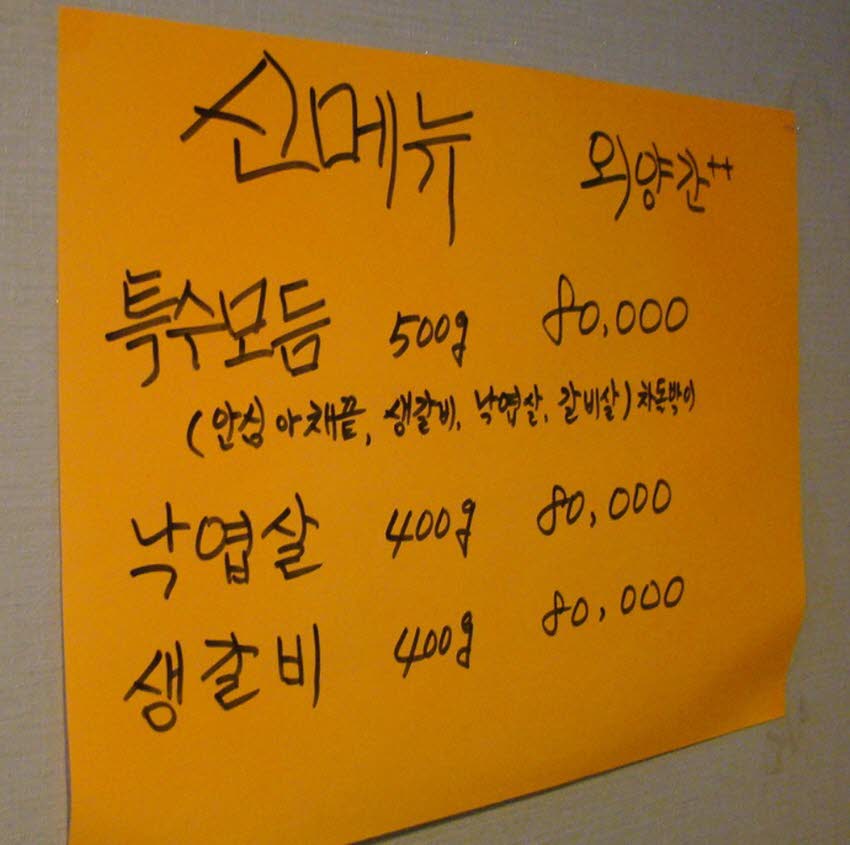 신메뉴 외양간++
특수모듬 500g 80,000
(안심 아 채끝, 생갈비, 낙엽살, 갈비살) 차돌박이
낙엽살 400g 80,000
생갈비 400g 80,000